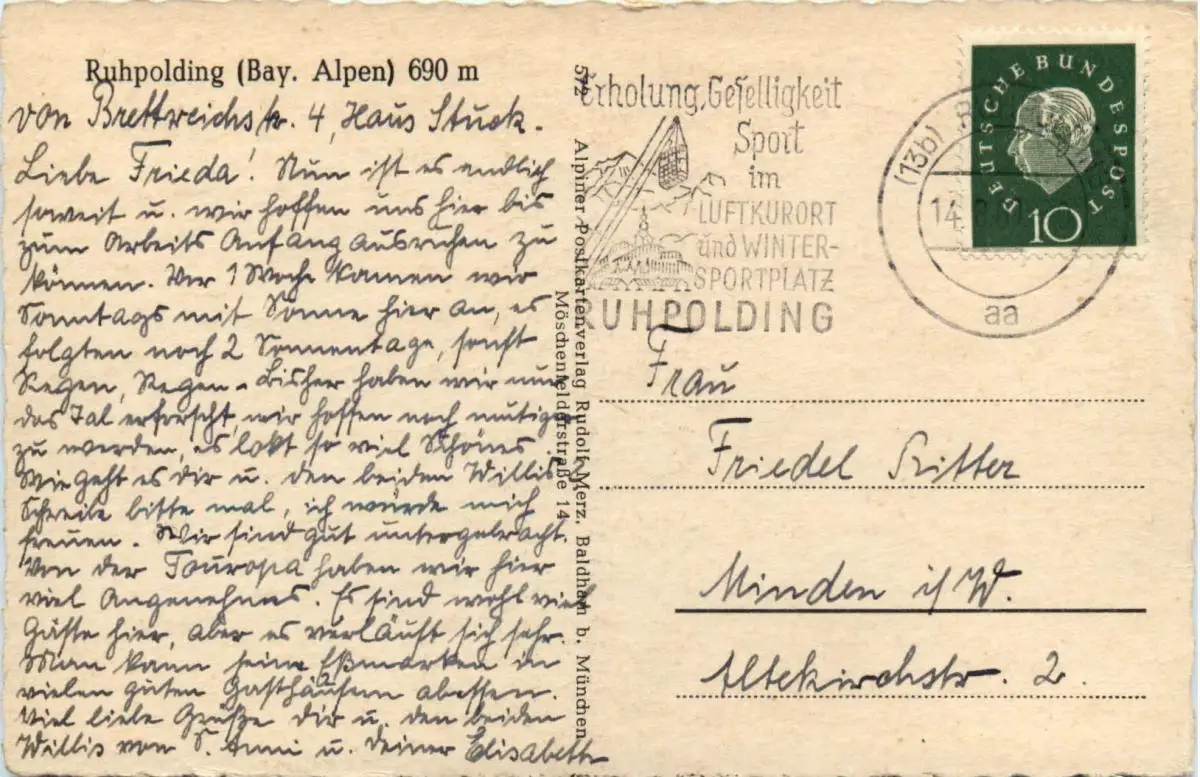 Ruhpolding (Bay. Alpen) 690 m
von Brettreichstr. 4, Haus Stuck.
Liebe Frieda! Nun ist es endlich
soweit u. wir hoffen uns hier bis
zum Arbeits Anfang ausruhen zu
können. Vor 1 Woche kamen wir
Sonntags mit Sonne hier an, es
folgten noch 2 Sonnentage, sonst
Regen, Regen - Bisher haben wir nur
das Tal erforscht, wir hoffen noch mutiger
zu werden, es lokt so viel Schönes.
Wie geht es dir u. den beiden Willis.
Schreibe bitte mal, ich würde mich
freuen. Wir sind gut untergebracht.
Von der Touropa haben wir hier
viel Angenehmes. Es sind wohl viel
Gäste hier, aber es verläuft sich sehr.
Man kann seine Eßmarken in
vielen guten Gasthäusern abessen.
Viel liebe Grüße dir u. den beiden
Willis von S. Anni u. deiner Elisabeth
572 Alpiner Postkartenverlag Rudolf Merz, Baldham b. München
Möschenfelderstraße 14
Erholung, Geselligkeit
Sport
im
LUFTKURORT
und WINTER-
SPORTPLATZ
RUHPOLDING
(13b)
14.
aa
DEUTSCHE BUNDESPOST
10
Frau
Friedel Ritter
Minden i/W.
Altekirchstr. 2.